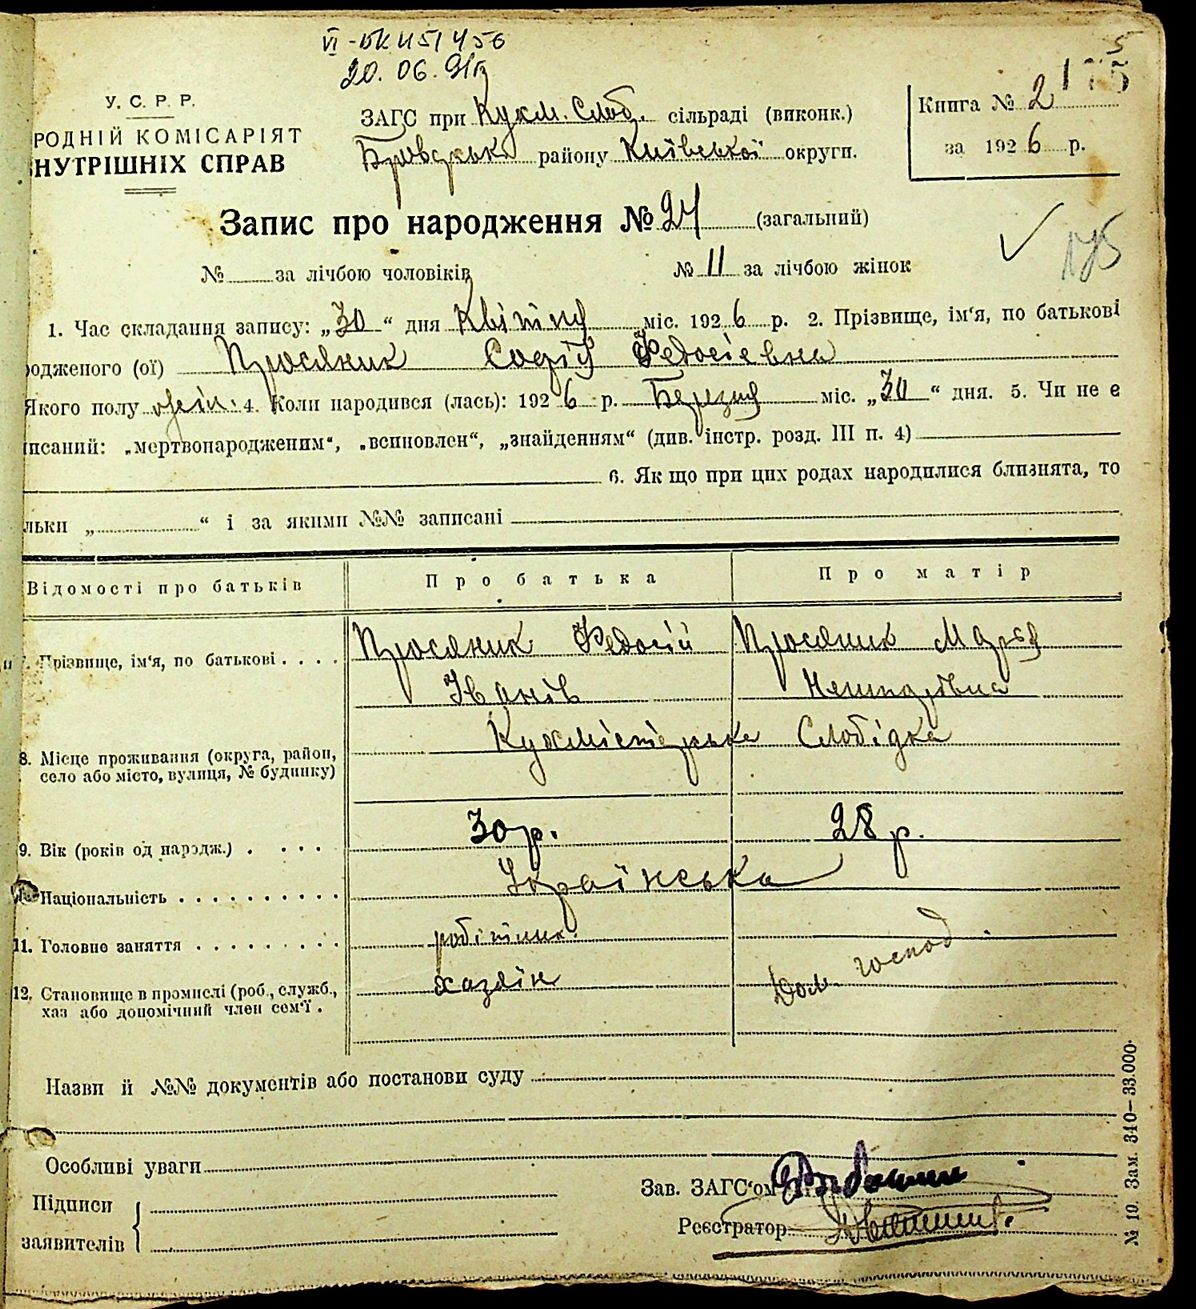 VI-БК 451456
20.06.91р
5
175
У. С. Р. Р.
РОДНІЙ КОМІСАРІЯТ
НУТРІШНІХ СПРАВ
ЗАГС при Кухм. Слоб. сільраді (виконк.)
району Київської округи.
Книга № 2
за 1926 р.
Запис про народження № 24 (загальний)
175
№ за лічбою чоловіків
№ 11 за лічбою жінок
1. Час складання запису: „30“ дня Квітня міс. 1926 р. 2. Прізвище, ім'я, по батькові
одженого (ої) Просяник Софія Федосієвна
Якого полу жін. 4. Коли народився (лась): 1926 р. Березня міс. „30“ дня. 5. Чи не є
исаний: „мертвонародженим“, „всиновлен“, „знайденням“ (див. інстр. розд. III п. 4)
6. Як що при цих родах народилися близнята, то
льки „ “ і за якими №№ записані
Відомості про батьків
Про батька
Про матір
7. Прізвище, ім'я, по батькові . . . .
Просяник Федосій
Іванів
Просяник Марія
8. Місце проживання (округа, район,
село або місто, вулиця, № будинку)
Кухмістерська Слобідка
9. Вік (років од народж.) . . . .
30 р.
28 р.
Національність . . . . . . . . . .
Українська
11. Головне заняття . . . . . . . . .
робітник
12. Становище в промислі (роб., служб.,
хаз або допомічний член сем'ї .
хазяїн
Дом. господ.
Назви й №№ документів або постанови суду
Особливі уваги
Підписи
заявителів
Зав. ЗАГС'ом
Реєстратор
№ 10. Зам. 340—33.000.